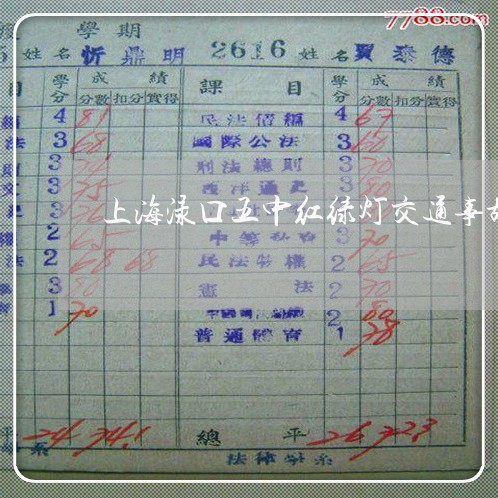 7788.com
學期
姓名 忻鼎明 2616 姓名 賈泰德
目 學分 成績 課目 學分 成績
分數 扣分 實得 分數 扣分 實得
4 81 民法債編 4 67
法 3 68 國際公法 3 60
3 刑法總則 3 70
文 3 75 西洋通史 3 80
3
上海渌口五中红绿灯交通事故
2 65 3 70
法 2 68 68 民法物權 2 65
3 80 憲法 2 70
1 70 2 80
普通體育 1 78
平 24 74.1 總平 26 72.3
系 法律學系